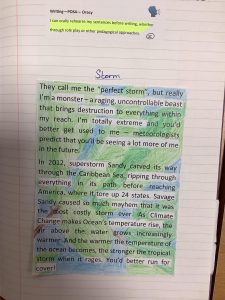 Writing – POSA – Oracy
I can orally rehearse my sentences before writing, whether
through role play or other pedagogical approaches.
Storm
They call me the "perfect storm", but really
I'm a monster – a raging, uncontrollable beast
that brings destruction to everything within
my reach. I'm totally extreme and you'd
better get used to me – meteorologists
predict that you'd be seeing a lot more of me
in the future.
In 2012, superstorm Sandy carved its way
through the Caribbean Sea, ripping through
everything in its path before reaching
America, where it tore up 24 states. Savage
Sandy caused so much mayhem that it was
the most costly storm ever. As Climate
Change makes Ocean's temperature rise, the
air above the water grows increasingly
warmer. And the warmer the temperature of
the ocean becomes, the stronger the tropical
storm when it rages. You'd better run for
cover!